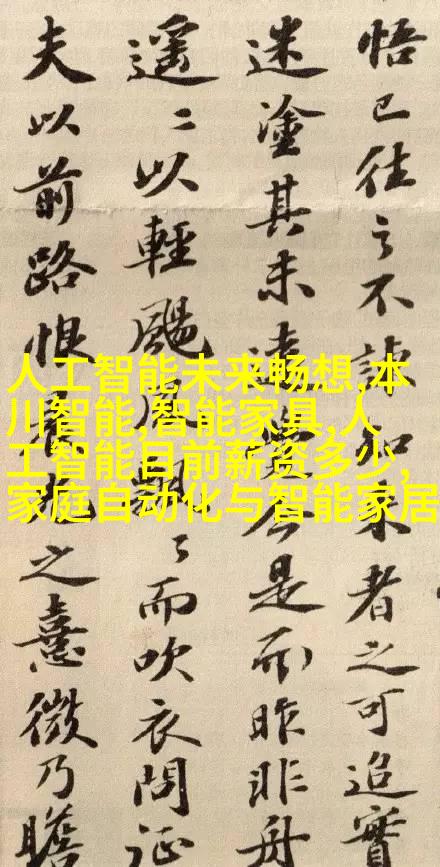 悟已往之不諫知来者之可追實
迷塗其未遠覺今是而昨非舟
遥〻以輕颺風飄〻而吹衣問征
夫以前路恨晨光之熹微乃瞻
人工智能未来畅想,本
川智能,智能家具,人
工智能目前薪资多少,
家庭自动化与智能家居